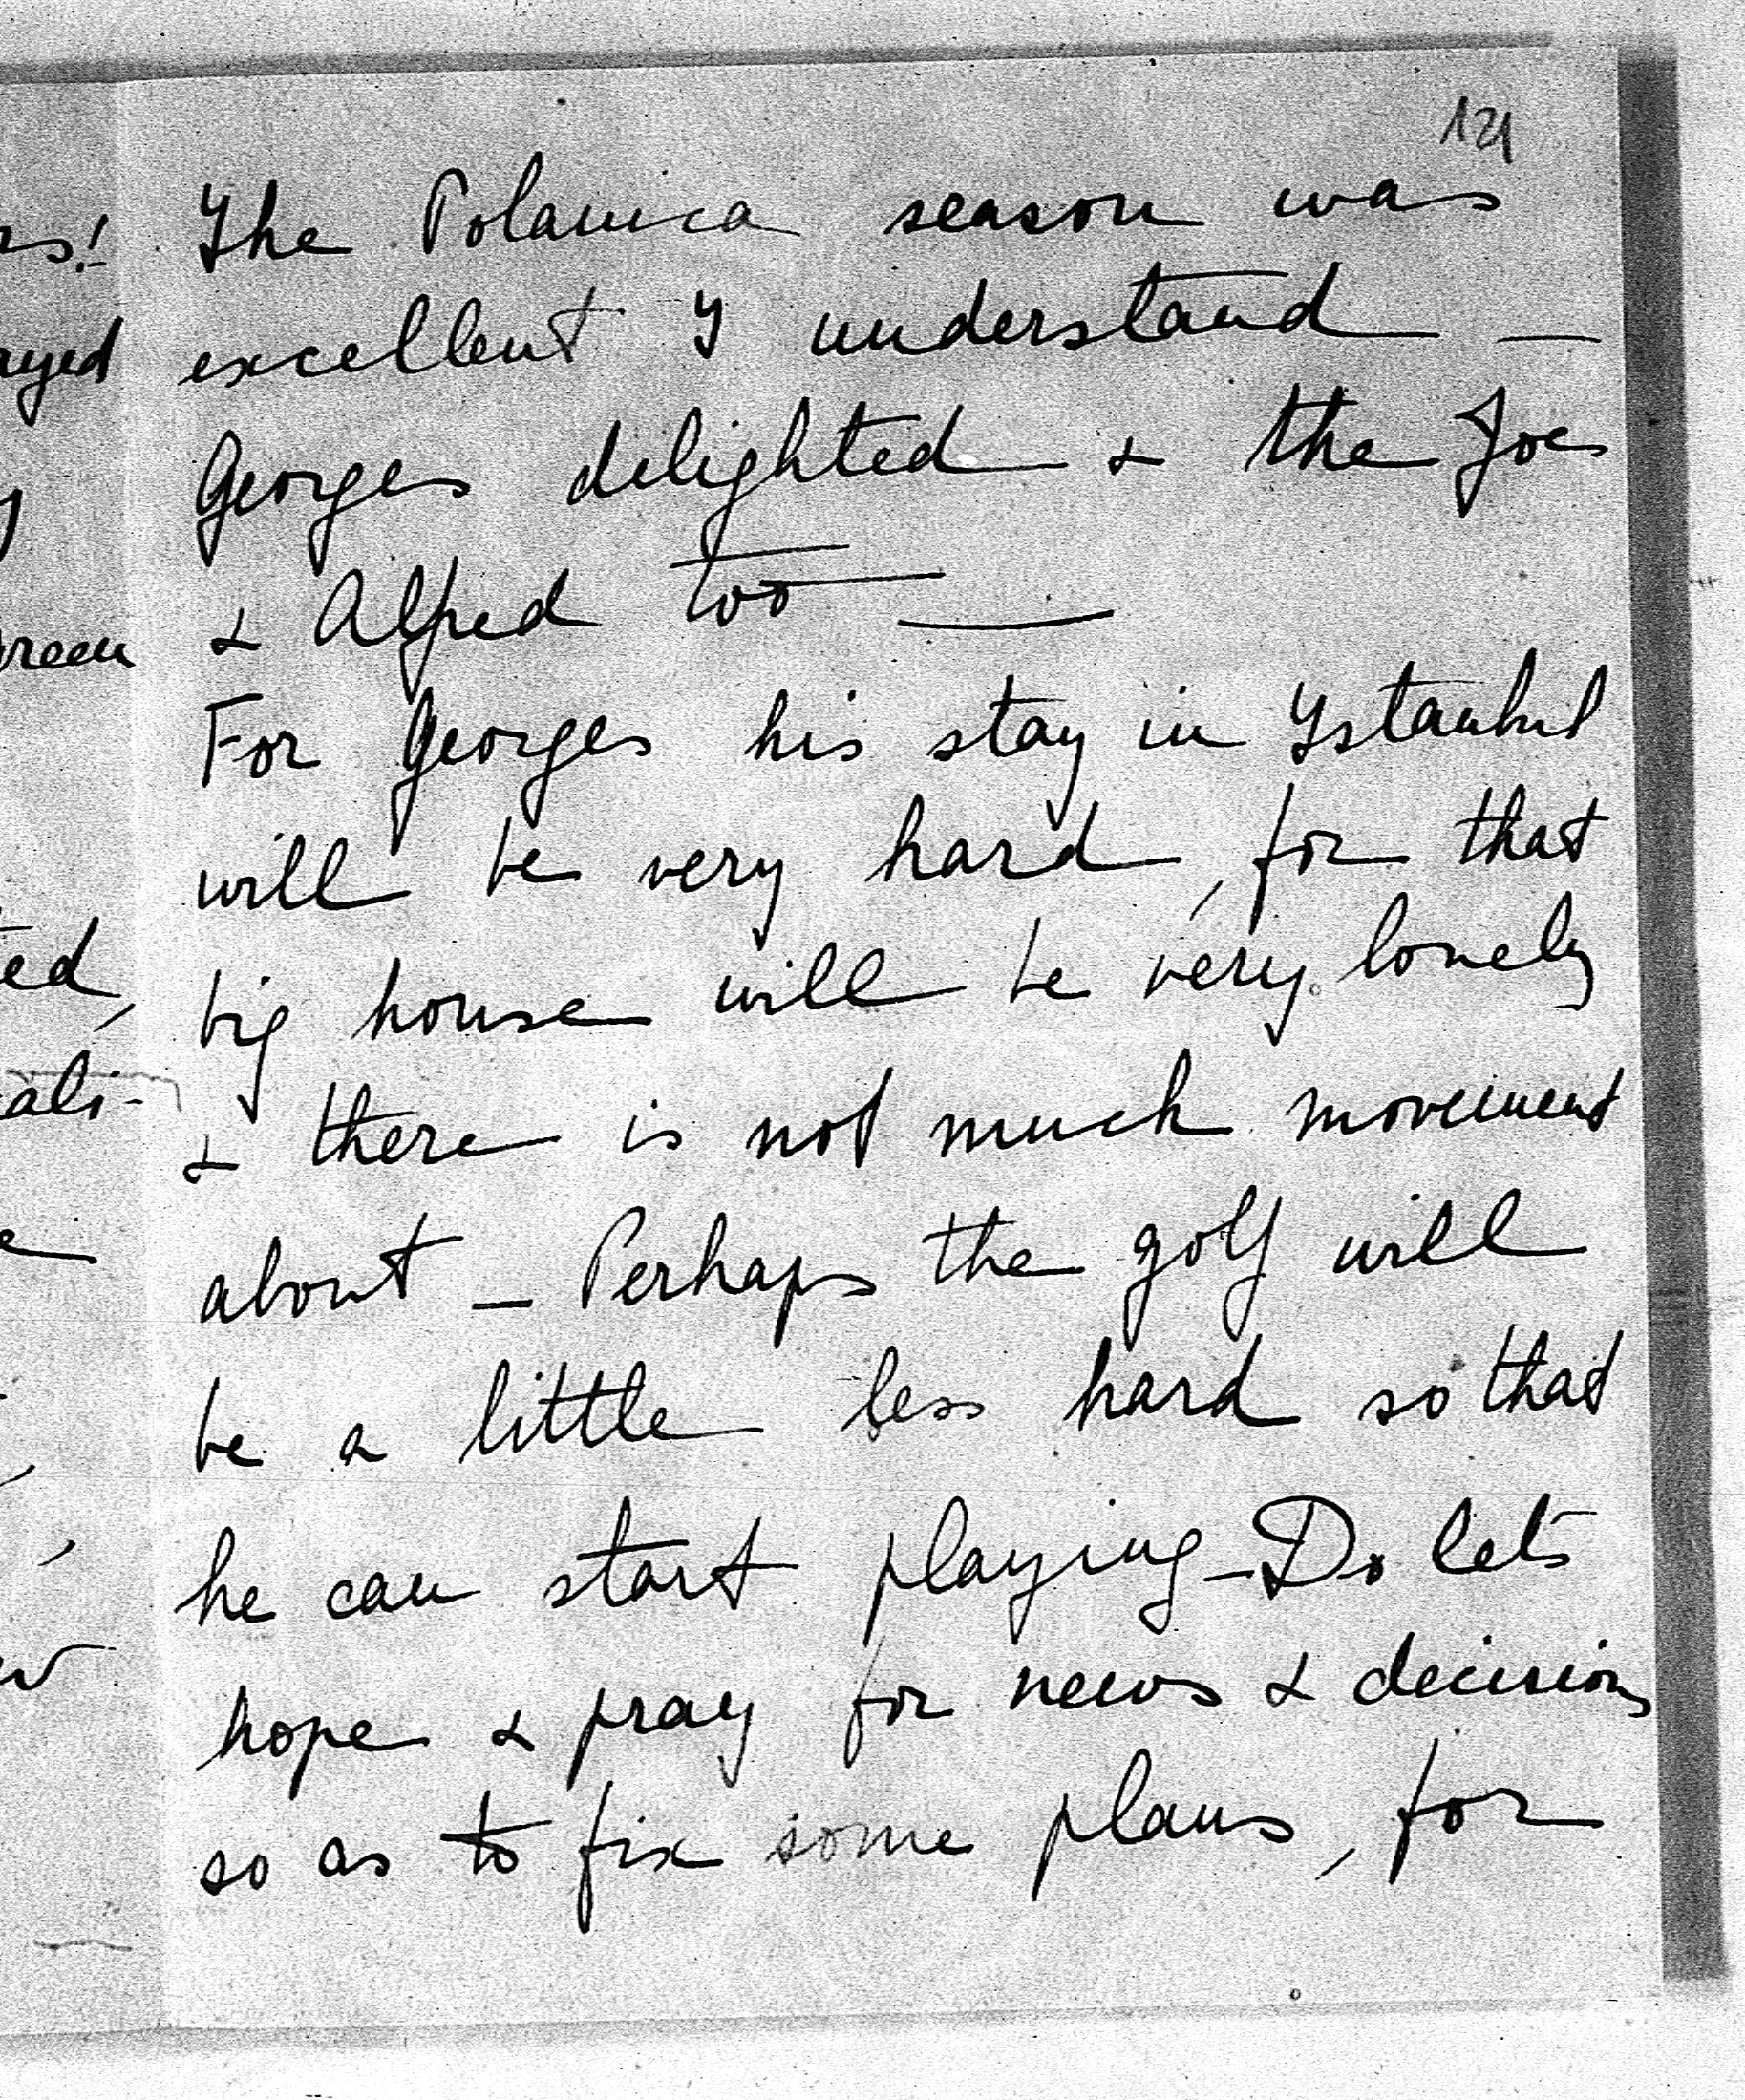 121
The Polanica season was
excellent I understand —
Georges delighted & the Joes
& Alfred too —
For Georges his stay in Istanbul
will be very hard, for that
big house will be very lonely
& there is not much movement
about — Perhaps the golf will
be a little less hard so that
he can start playing – Do lets
hope & pray for news & decisions
so as to fix some plans, for